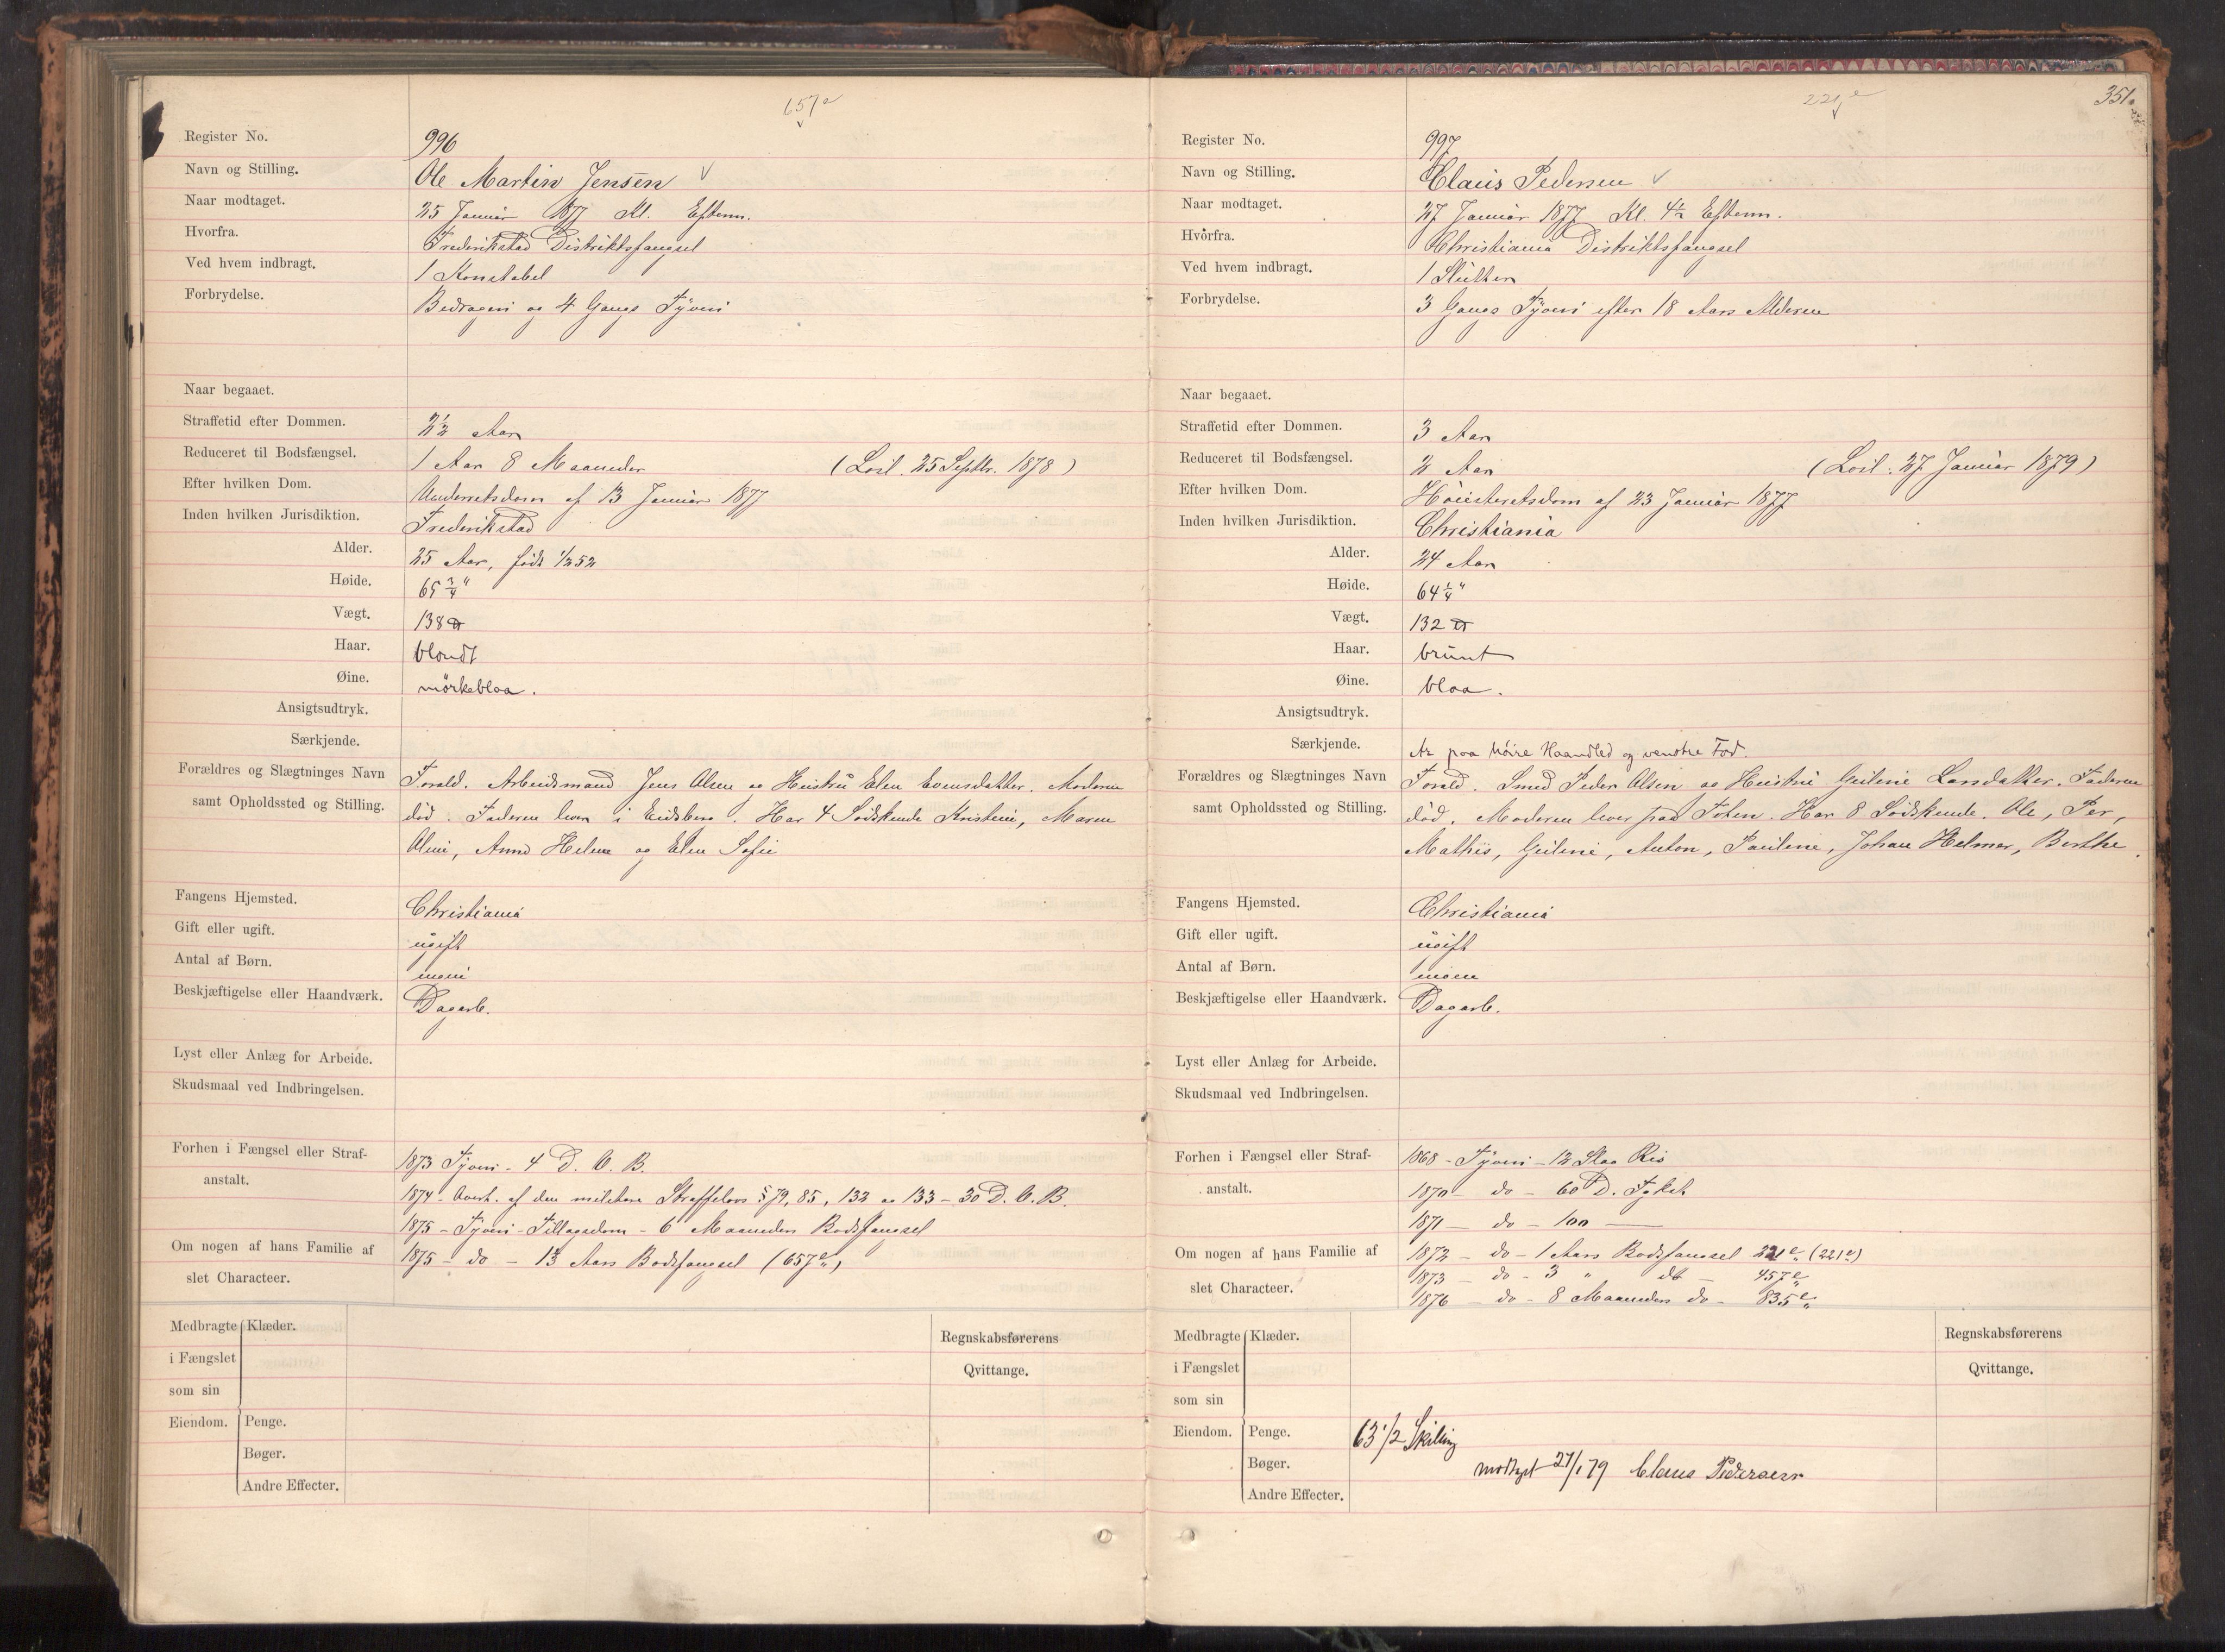 657e
Register No. 996
Navn og Stilling. Ole Martin Jensen
Naar modtaget. 25 Januar 1877 Kl. Efterm.
Hvorfra. Frederikstad Distriktsfængsel
Ved hvem indbragt. 1 Konstabel
Forbrydelse. Bedrageri og 4 Gangs Tyveri
Naar begaaet.
Straffetid efter Dommen. 2½ Aar
Reduceret til Bodsfængsel. 1 Aar 8 Maaneder (Løsl. 25 Septbr. 1878)
Efter hvilken Dom. Underretsdom af 13 Januar 1877
Inden hvilken Jurisdiktion. Frederikstad
Alder. 25 Aar, født 1/2 52
Høide. 65 3/4"
Vægt. 138 ℔
Haar. blondt
Øine. mörkeblaa.
Ansigtsudtryk.
Særkjende.
Forældres og Slægtninges Navn Foræld. Arbeidsmand Jens Olsen og Hustru Elen Evensdatter. Moderen
samt Opholdssted og Stilling. död. Faderen lever i Eidsberg. Har 4 Södskende Kristine, Maren
Oline, Anne Helene og Elen Sofie
Fangens Hjemsted. Christiania
Gift eller ugift. ugift
Antal af Børn. ingen
Beskjæftigelse eller Haandværk. Dagarb.
Lyst eller Anlæg for Arbeide.
Skudsmaal ved Indbringelsen.
Forhen i Fængsel eller Straf- 1873 Tyveri - 4 D. V. B.
anstalt. 1874 - Overt. af den militære Straffelovs § 79, 85, 132 og 133 - 30 D. V. B.
1875 - Tyveri - Tillægsdom - 6 Maaneders Bodsfængsel
Om nogen af hans Familie af 1875 - do - Aars Bodsfængsel (657e)
slet Characteer.
Medbragte Klæder. Regnskabsførerens
i Fængslet Qvittange.
som sin
Eiendom. Penge.
Bøger.
Andre Effecter.
221e 351.
Register No. 997
Navn og Stilling. Claus Pedersen
Naar modtaget. 27 Januar 1877 Kl. 4½ Efterm.
Hvorfra. Christiania Distriktsfængsel
Ved hvem indbragt. 1 Slutter
Forbrydelse. 3 Gangs Tyveri efter 18 Aars Alderen
Naar begaaet.
Straffetid efter Dommen. 3 Aar
Reduceret til Bodsfængsel. 2 Aar (Løsl. 27 Januar 1879)
Efter hvilken Dom. Höiesteretsdom af 23 Januar 1877
Inden hvilken Jurisdiktion. Christiania
Alder. 24 Aar
Høide. 64 1/4"
Vægt. 132 ℔
Haar. brunt
Øine. blaa.
Ansigtsudtryk.
Særkjende. Ar paa höire Haandled og venstre Fod.
Forældres og Slægtninges Navn Foræld. Smed Peder Olsen og Hustru Guline Larsdatter. Faderen
samt Opholdssted og Stilling. död. Moderen lever paa Toten. Har 8 Södskende. Ole, Per,
Mathis, Guline, Anton, Pauline, Johan Helmer, Berthe.
Fangens Hjemsted. Christiania
Gift eller ugift. ugift
Antal af Børn. ingen
Beskjæftigelse eller Haandværk. Dagarb.
Lyst eller Anlæg for Arbeide.
Skudsmaal ved Indbringelsen.
Forhen i Fængsel eller Straf- 1868 - Tyveri - 12 Slag Ris
anstalt. 1870 - do - 60 D.
1871 - do - 100 —
Om nogen af hans Familie af 1872 - do - 1 Aars Bodsfængsel 221e (221e)
slet Characteer. 1873 - do - 3 " do - 457e
1876 - do - 8 Maaneders do - 835e
Medbragte Klæder. Regnskabsførerens
i Fængslet Qvittange.
som sin
Eiendom. Penge. 63 1/2 Skilling
Bøger. modtaget 27/1 79 Claus Pedersen
Andre Effecter.